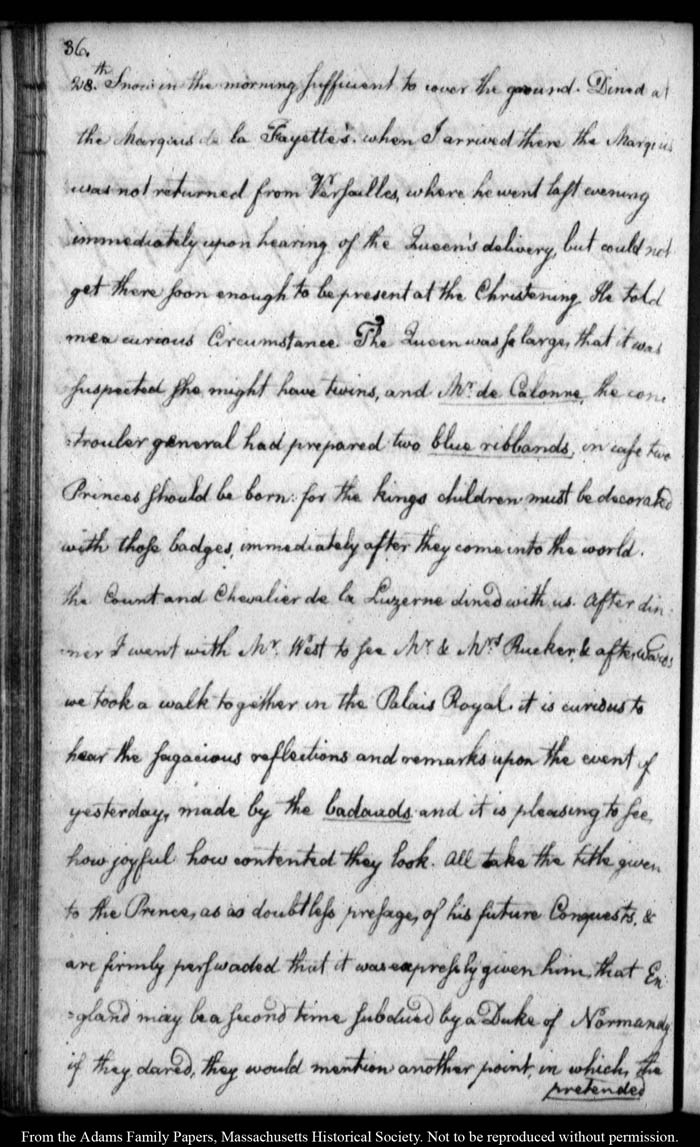 36.
28.th Snow in the morning sufficient to cover the ground. Dined at
the Marquis de la Fayette's. when I arrived there the Marquis
was not returned from Versailles, where he went last evening
immediately upon hearing of the Queen's delivery, but could not
get there soon enough to be present at the Christening. He told
me a curious Circumstance. The Queen was so large, that it was
suspected she might have twins, and Mr. de Calonne, the con
:trouler general had prepared two blue ribbands, in case two
Princes should be born: for the kings children must be decorated
with those badges, immediately after they come into the world.
the Count and Chevalier de la Luzerne dined with us. After din
:ner I went with Mr. West to see Mr. & Mrs. Rucker, & afterwards
we took a walk together in the Palais Royal. it is curious to
hear the sagacious reflections and remarks upon the event of
yesterday, made by the badauds and it is pleasing to see,
how joyful how contented they look. All take the title given
to the Prince, as a doubtless presage, of his future Conquests, &
are firmly perswaded that it was expressly given him, that En
:gland may be a second time subdued by a Duke of Normandy.
if they dared, they would mention another point, in which, the
pretended
From the Adams Family Papers, Massachusetts Historical Society. Not to be reproduced without permission.